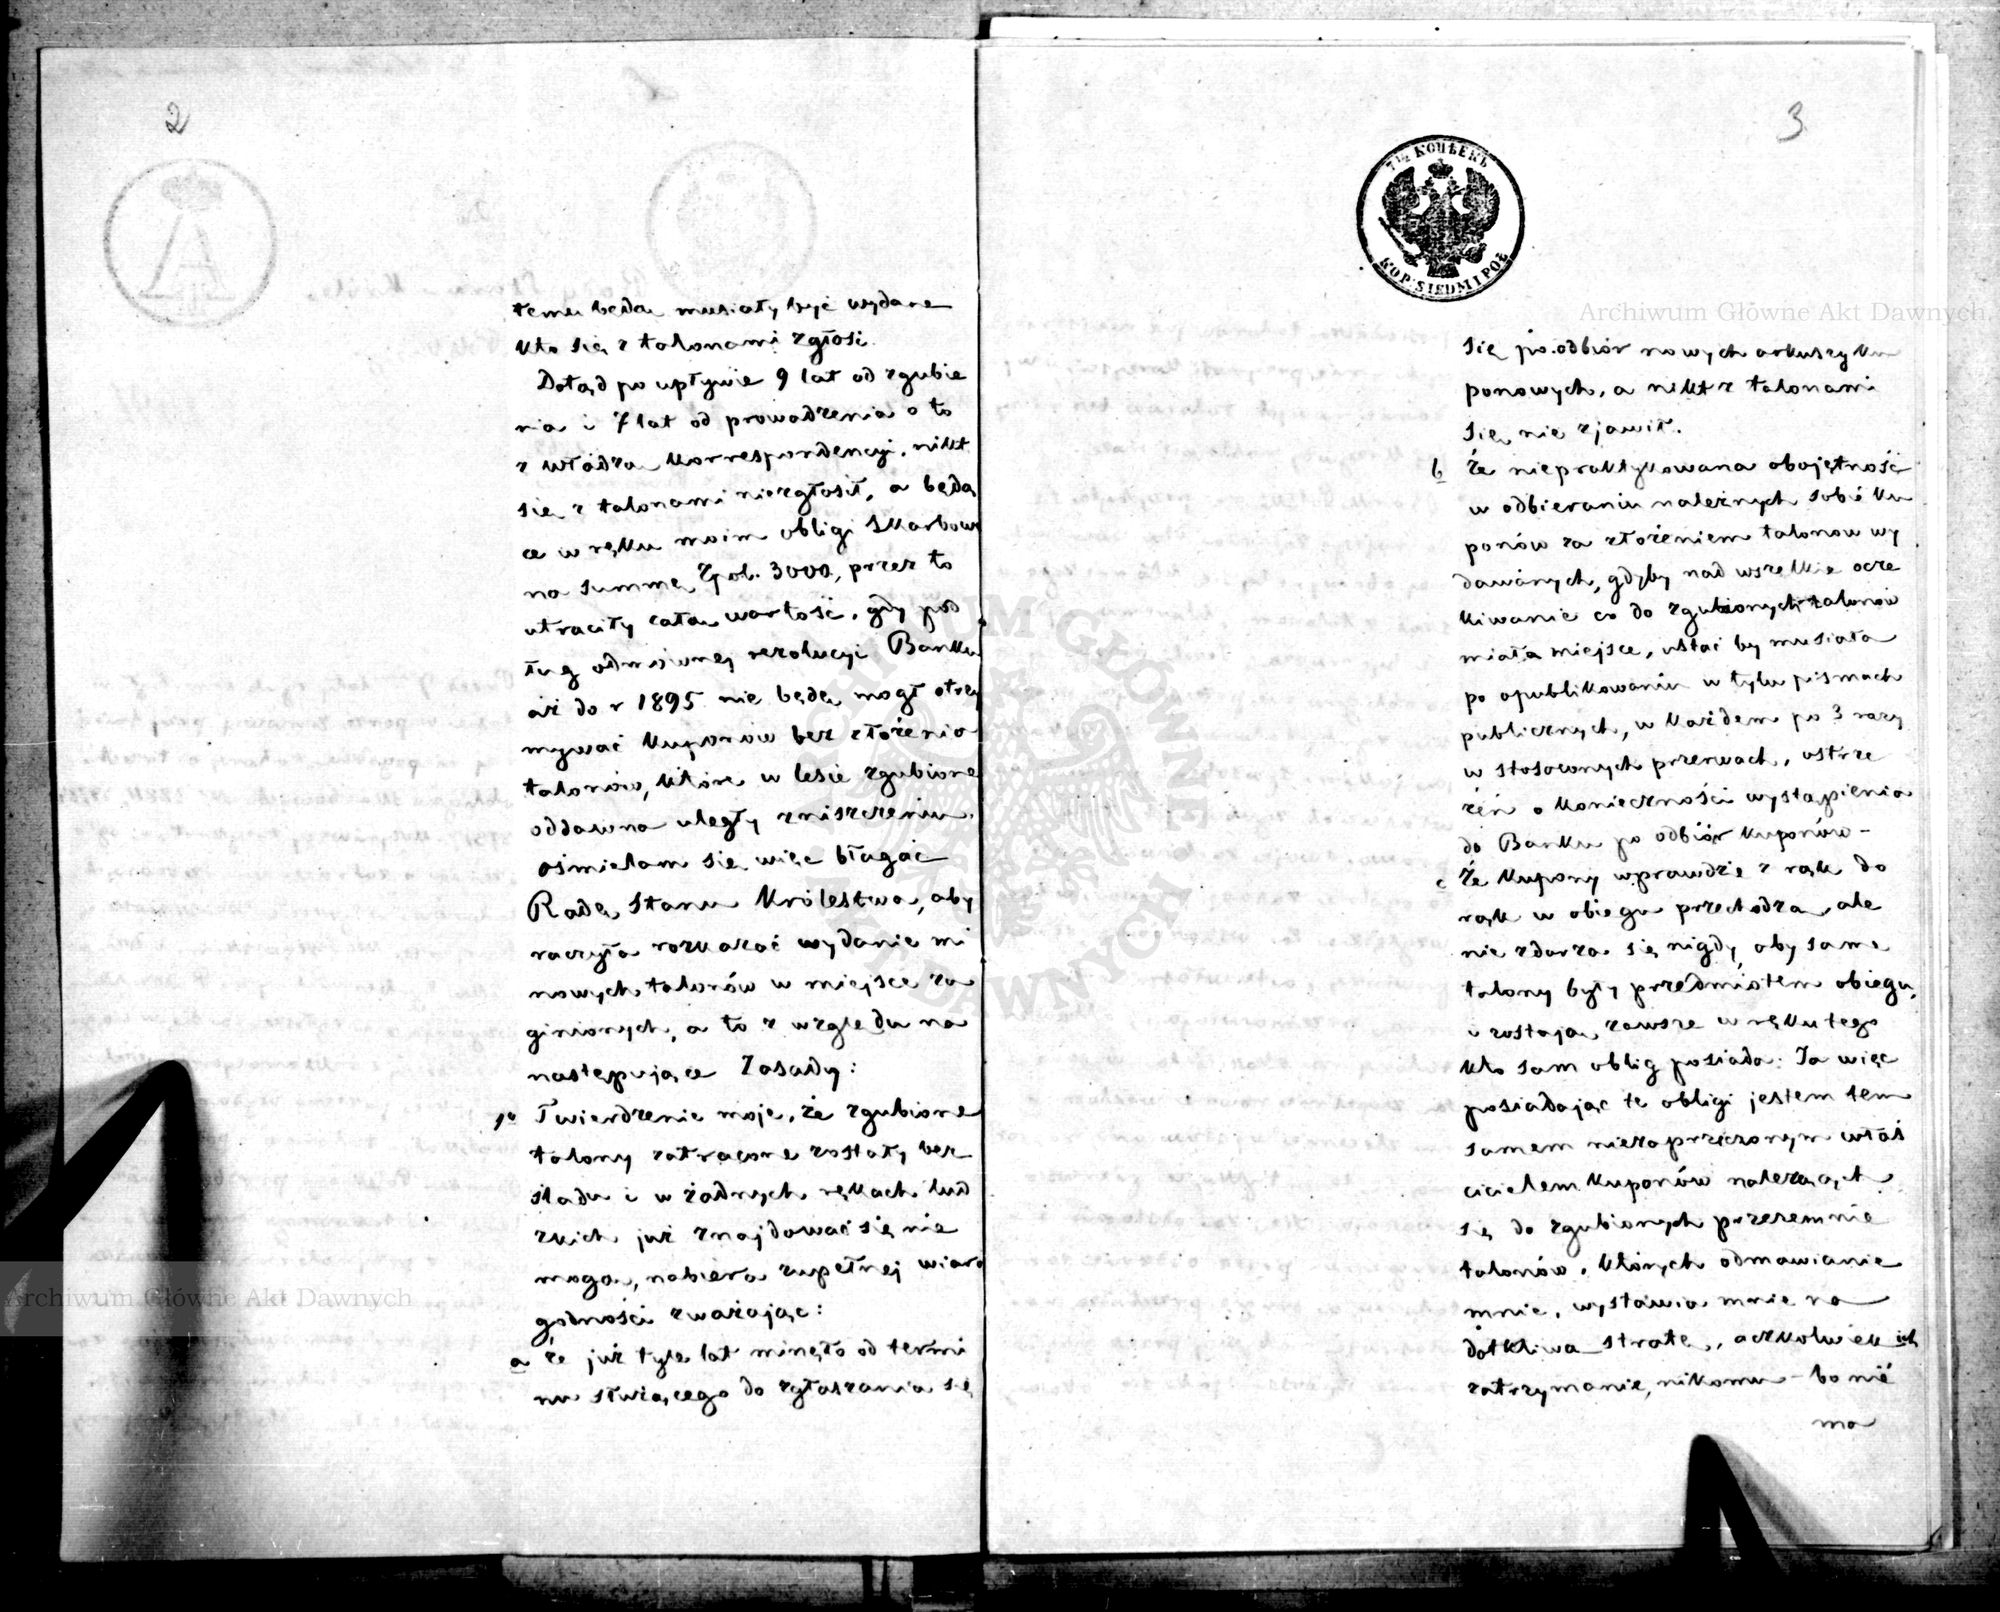 2
temu będą musiały być wydane
kto się z talonami zgłosi.
Dotąd po upływie 9 lat od zgubie
nia i 7 lat od prowadzenia o to
z władzą korrespondencyi, nikt
się z talonami niezgłosił, a będą
ce w ręku moim obligi Skarbowe
na summę Złpol. 3000, przez to
utraciły całą wartość, gdy pod
ług odmównej rezolucyi Banku
aż do r 1895 nie będę mogł otrzy
mywać kuponów bez złożenia
talonów, które w lesie zgubione
oddawna uległy zniszczeniu.
Ośmielam się więc błagać
Radę Stanu Królestwa, aby
raczyła rozkazać wydanie mi
nowych talonów w miejsce za
ginionych, a to z względu na
następujące Zasady:
1º Twierdzenie moje, że zgubione
talony zatracone zostały bez
śladu i w żadnych rękach ludz
kich już znajdować się nie
mogą, nabiera zupełnej wiaro
godności zważając:
a że już tyle lat minęło od termi
nu służącego do zgłaszania się
3
7½ КОПѢЕКЪ
KOP. SIEDM I POŁ
się po odbiór nowych arkuszy ku
ponowych, a nikt z talonami
się nie zjawił.
b że niepraktykowana obojętność
w odbieraniu należnych sobie ku
ponów za złożeniem talonow wy
dawanych, gdyby nad wszelkie ocze
kiwanie co do zgubionych talonów
miała miejsce, ustać by musiała
po opublikowaniu w tylu pismach
publicznych, w każdem po 3 razy
w stosownych przerwach, ostrze
żeń o konieczności wystąpienia
do Banku po odbiór kuponów –
c że kupony wprawdzie z rąk do
rąk w obiegu przechodzą, ale
nie zdarza się nigdy, aby same
talony były przedmiotem obiegu,
i zostają zawsze w ręku tego
kto sam oblig posiada. Ja więc
posiadając te obligi jestem tem
samem niezaprzeczonym właś
cicielem kuponów należących
się do zgubionych przezemnie
talonów, których odmawianie
mnie, wystawia mnie na
dotkliwą stratę, aczkolwiek ich
zatrzymanie, nikomu – bo nié
ma
Archiwum Główne Akt Dawnych
Archiwum Główne Akt Dawnych
ARCHIWUM GŁÓWNE AKT DAWNYCH